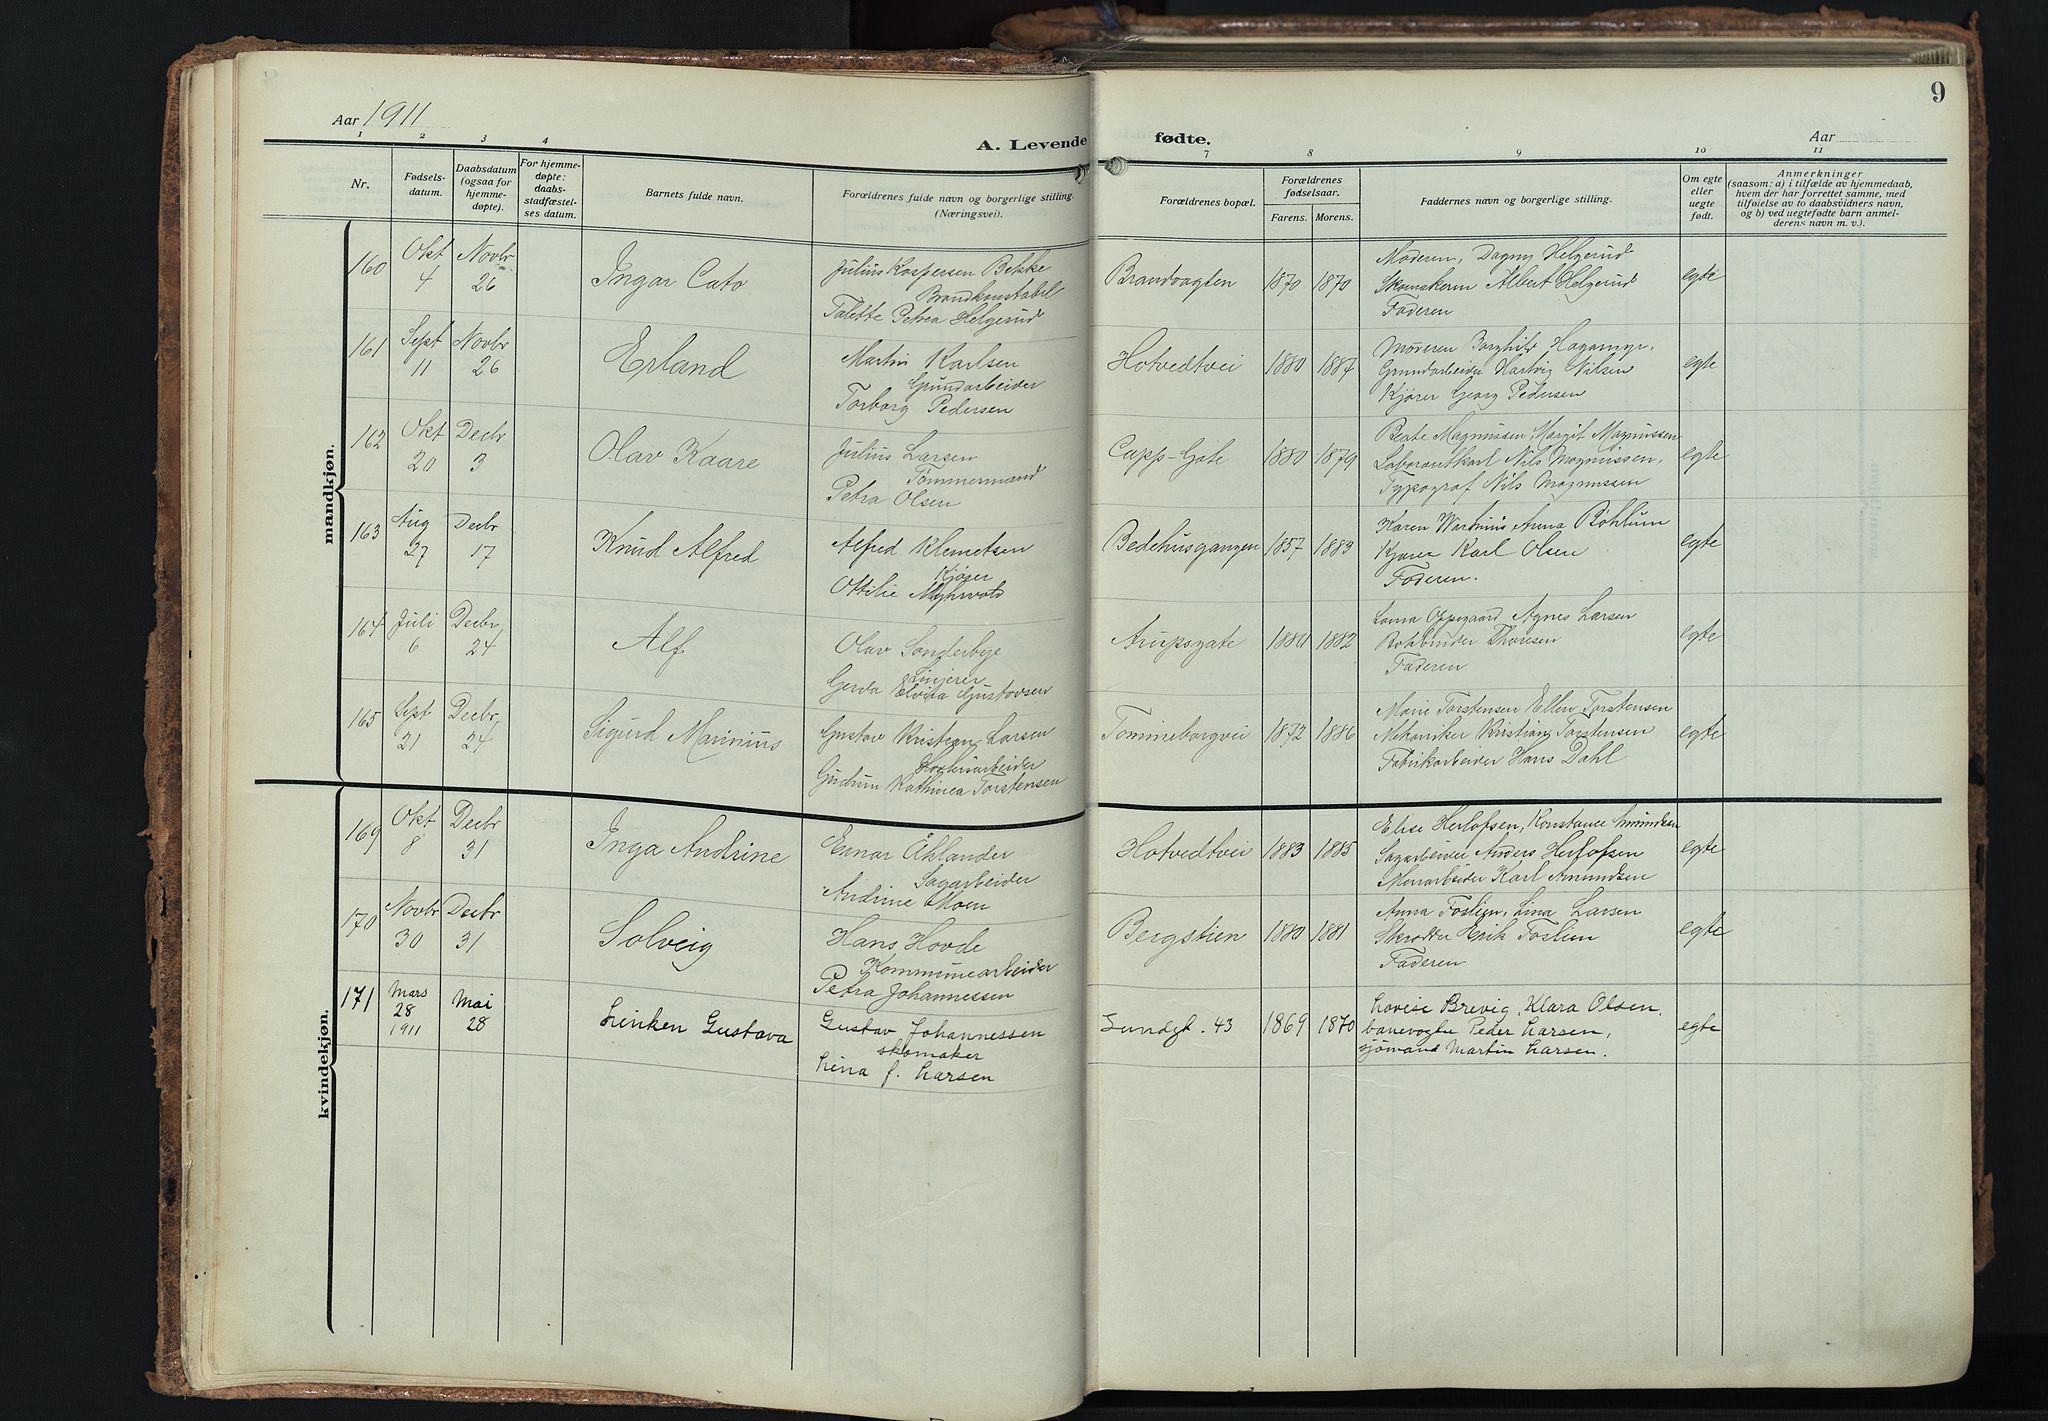 Aar 1911
A. Levende fødte.
Aar
9
1 2 3 4 7 8 9 10 11
Nr.
Fødselsdatum.
Daabsdatum (ogsaa for hjemmedøpte).
For hjemmedøpte: daabsstadfæstelses datum.
Barnets fulde navn.
Forældrenes fulde navn og borgerlige stilling. (Næringsvei).
Forældrenes bopæl.
Forældrenes fødselsaar.
Farens. Morens.
Faddernes navn og borgerlige stilling.
Om egte eller uegte født.
Anmerkninger
(saasom: a) i tilfælde av hjemmedaab,
hvem der har forrettet samme, med
tilføielse av to daabsvidners navn,
og b) ved uegtefødte barn anmelderens navn m. v.).
mandkjøn.
160 Okt 4 Novbr 26 Ingar Cato
Julius Kaspersen Belske
Brandkonstabel
Talette Petrea Helgerud
Brandvagten 1870 1870
Moderen, Dagny Helgerud
Albert Helgerud
Faderen
egte
161 Sept 11 Novbr 26 Erland
Martin Karlsen
Grundarbeider
Torborg Pedersen
Hotvedtvei 1880 1887
Moderen Borghild
Grundarbeider Hartvig Nilsen
Kjører Georg Pedersen
egte
162 Okt 20 Decbr 3 Olav Kaare
Julius Larsen
Tømmermand
Petra Olsen
Capp-Gate 1880 1879
Beate Magnussen, Margit Magnussen
Nils Magnussen,
Typograf Nils Magnussen
egte
163 Aug 27 Decbr 17 Knud Alfred
Alfred Klemetsen
Kjører
Ottilie Myhrvold
Bedehusgangen 1857 1883
Karen Anna
Kjører Karl Olsen
Faderen.
egte
164 Juli 6 Decbr 24 Alf
Olav Sønderbye
Linjerer
Gerda Elvira Gustavsen
Arupsgate 1880 1882
Agnes Larsen
Bokbinder Thoresen
Faderen
egte
165 Sept 21 Decbr 24 Sigurd Marinius
Gustav Kristian Larsen
Gudrun Kathinea Torstensen
Tømmeborgvei 1872 1886
Marie Torstensen Ellen Torstensen
Mekaniker Kristian Torstensen
Fabrikarbeider Hans Dahl
egte
kvindekjøn.
169 Okt 8 Decbr 31 Inga Andrine
Einar Åhlander
Sagarbeider
Andrine Moen
Hotvedtvei 1883 1885
Elise Herlofsen, Konstance Amundsen
Sagarbeider Anders Herlofsen
Murarbeider Karl Amundsen
egte
170 Novbr 30 Decbr 31 Solveig
Hans Hovde
Kommunearbeider
Petra Johannessen
Bergstien 1880 1881
Anna Foslien, Lina Larsen
Skrædder Erik Foslien
Faderen
egte
171 Mars 28 1911 Mai 28 Linken Gustava
Gustav Johannessen
skomaker
Lina f. Larsen
Lundgt. 43 1869 1870
Lovise Brevig, Klara Olsen,
banevogter Peder Larsen,
sjømand Martin Larsen.
egte